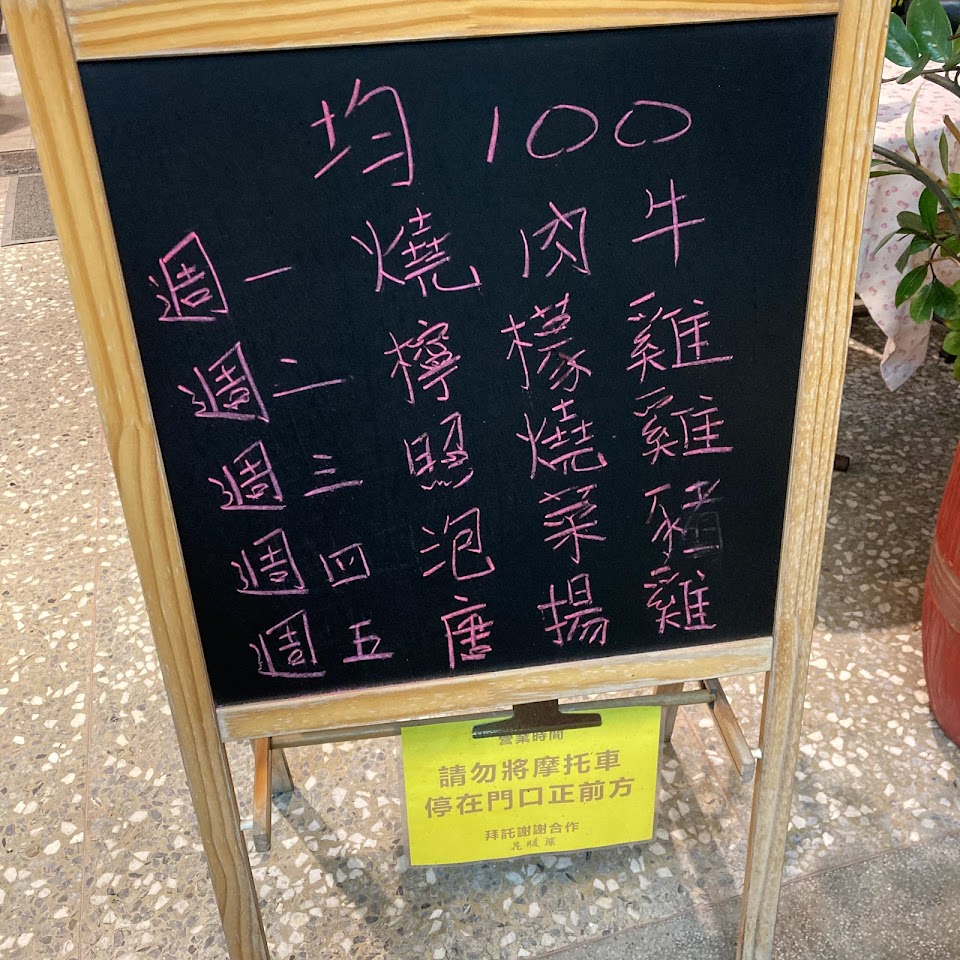 均100
週一 燒肉牛
週二 檸檬雞
週三 照燒雞
週四 泡菜豬
週五 唐揚雞
營業時間
請勿將摩托車
停在門口正前方
拜託謝謝合作